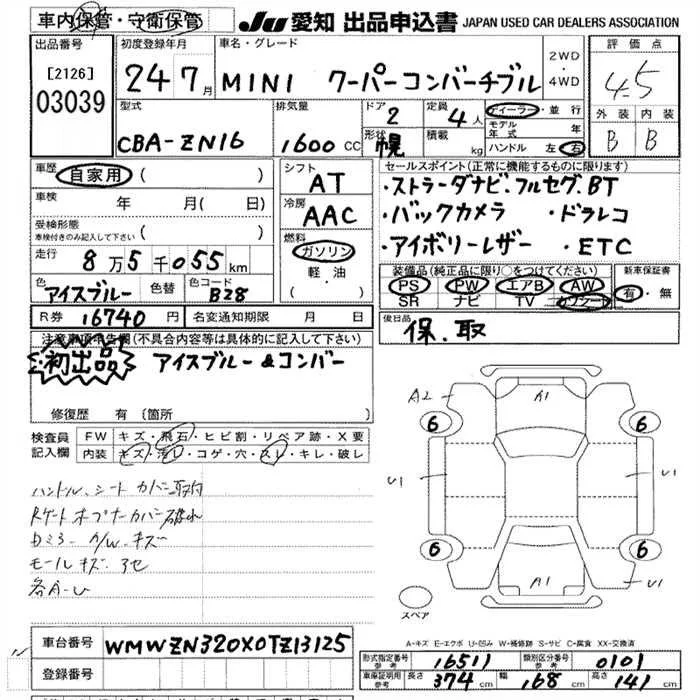 車内保管・守衛保管
JU 愛知 出品申込書 JAPAN USED CAR DEALERS ASSOCIATION
出品番号
[2126]
03039
初度登録年月
24 7月
車名・グレード
MINI クーパーコンバーチブル
2WD
・
4WD
評価点
4.5
外装 内装
B B
型式
CBA-ZN16
排気量
1600 CC
ドア
2
形状
幌
定員
4人
積載
kg
ディーラー・並行
モデル年式 年
ハンドル 左 右
車歴
自家用 ( )
車検 年 月( 日)
受検形態
車検付きのみ記入して下さい ( )
走行
8万5千055km
色
アイスブルー
色替
色コード
B28
シフト
AT
冷房
AAC
燃料
ガソリン
軽・油
( )
セールスポイント(正常に機能するものに限ります)
・ストラーダナビ.フルセグ.BT
・バックカメラ ・ドラレコ
・アイボリーレザー ・ETC
装備品(純正品に限り○をつけてください)
PS PW エアB AW
SR ナビ TV
新車保証書
有・無
R券 16740円
名変通知期限 月 日
後日品
保.取
注意事項申告欄(不具合内容等は具体的に記入して下さい)
初出品 アイスブルー&コンバー
修復歴 有 〔箇所 〕
検査員記入欄
FW キズ・飛石・ヒビ割・リペア跡・X要
内装 キズ・汚レ・コゲ・穴・スレ・キレ・破レ
ハンドル、シート カバー取付
モール キズ.
各A-U
A2
A1
6 6
U1 U1
6 6
A1
U1
スペア
A-キズ E-エクボ U-凹み W-補修跡 S-サビ C-腐食 XX-交換済
車台番号 WMWZN320X0TZ13125
登録番号
形式指定番号
参考
16511
類別区分番号
参考
0101
車庫証明用
参考
長さ 374cm 幅 168cm 高さ 141cm